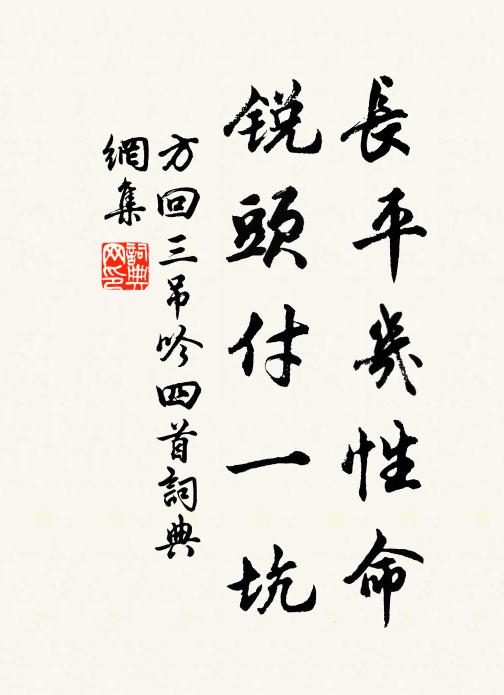 長平幾性命
銳頭付一坑
方回三吊吟四首詞典
網集
詞典网印